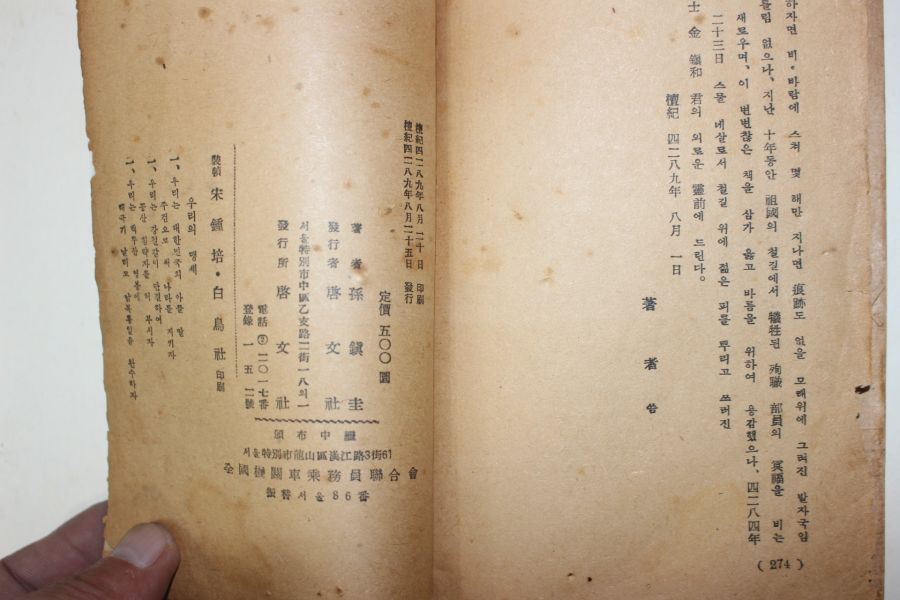 하자면 비·바람에 스쳐 몇 해만 지나면 痕跡도 없을 모래위에 그려진 발자국임
틀림 없으나, 지난 十年동안 祖國의 철길에서 犧牲된 殉職 部員의 冥福을 비는
새로우며, 이 변변찮은 책을 삼가 옳고 바름을 위하여 용감했으나, 四二八四年
二十三日 스물 네살로서 철길 위에 젊은 피를 뿌리고 쓰러진
士 金 嶺和 君의 외로운 靈前에 드린다.
檀紀 四二八九年 八月 一日
著 者 씀
( 274 )
檀紀四二八九年八月二十日 印刷
檀紀四二八九年八月二十五日 發行
定價 五〇〇 圜
著者 孫 鎭 圭
發行者 啓 文 社
서울特別市中區乙支路二街一八의一
發行所 啓 文 社
電話 ② 二〇一七番
登錄 一五二號
頒布中繼
서울特別市龍山區漢江路3街61
全國機關車乘務員聯合會
振替서울86番
裝幀 宋鍾培·白鳥社 印刷
우리의 맹세
一、우리는 대한민국의 아들 딸
주검으로 써 나라를 지키자
一、우리는 강철같이 단결하여
공산 침략자를 쳐 부시자
一、우리는 백두산 영봉에
태극기 날리고 남북통일을 완수하자